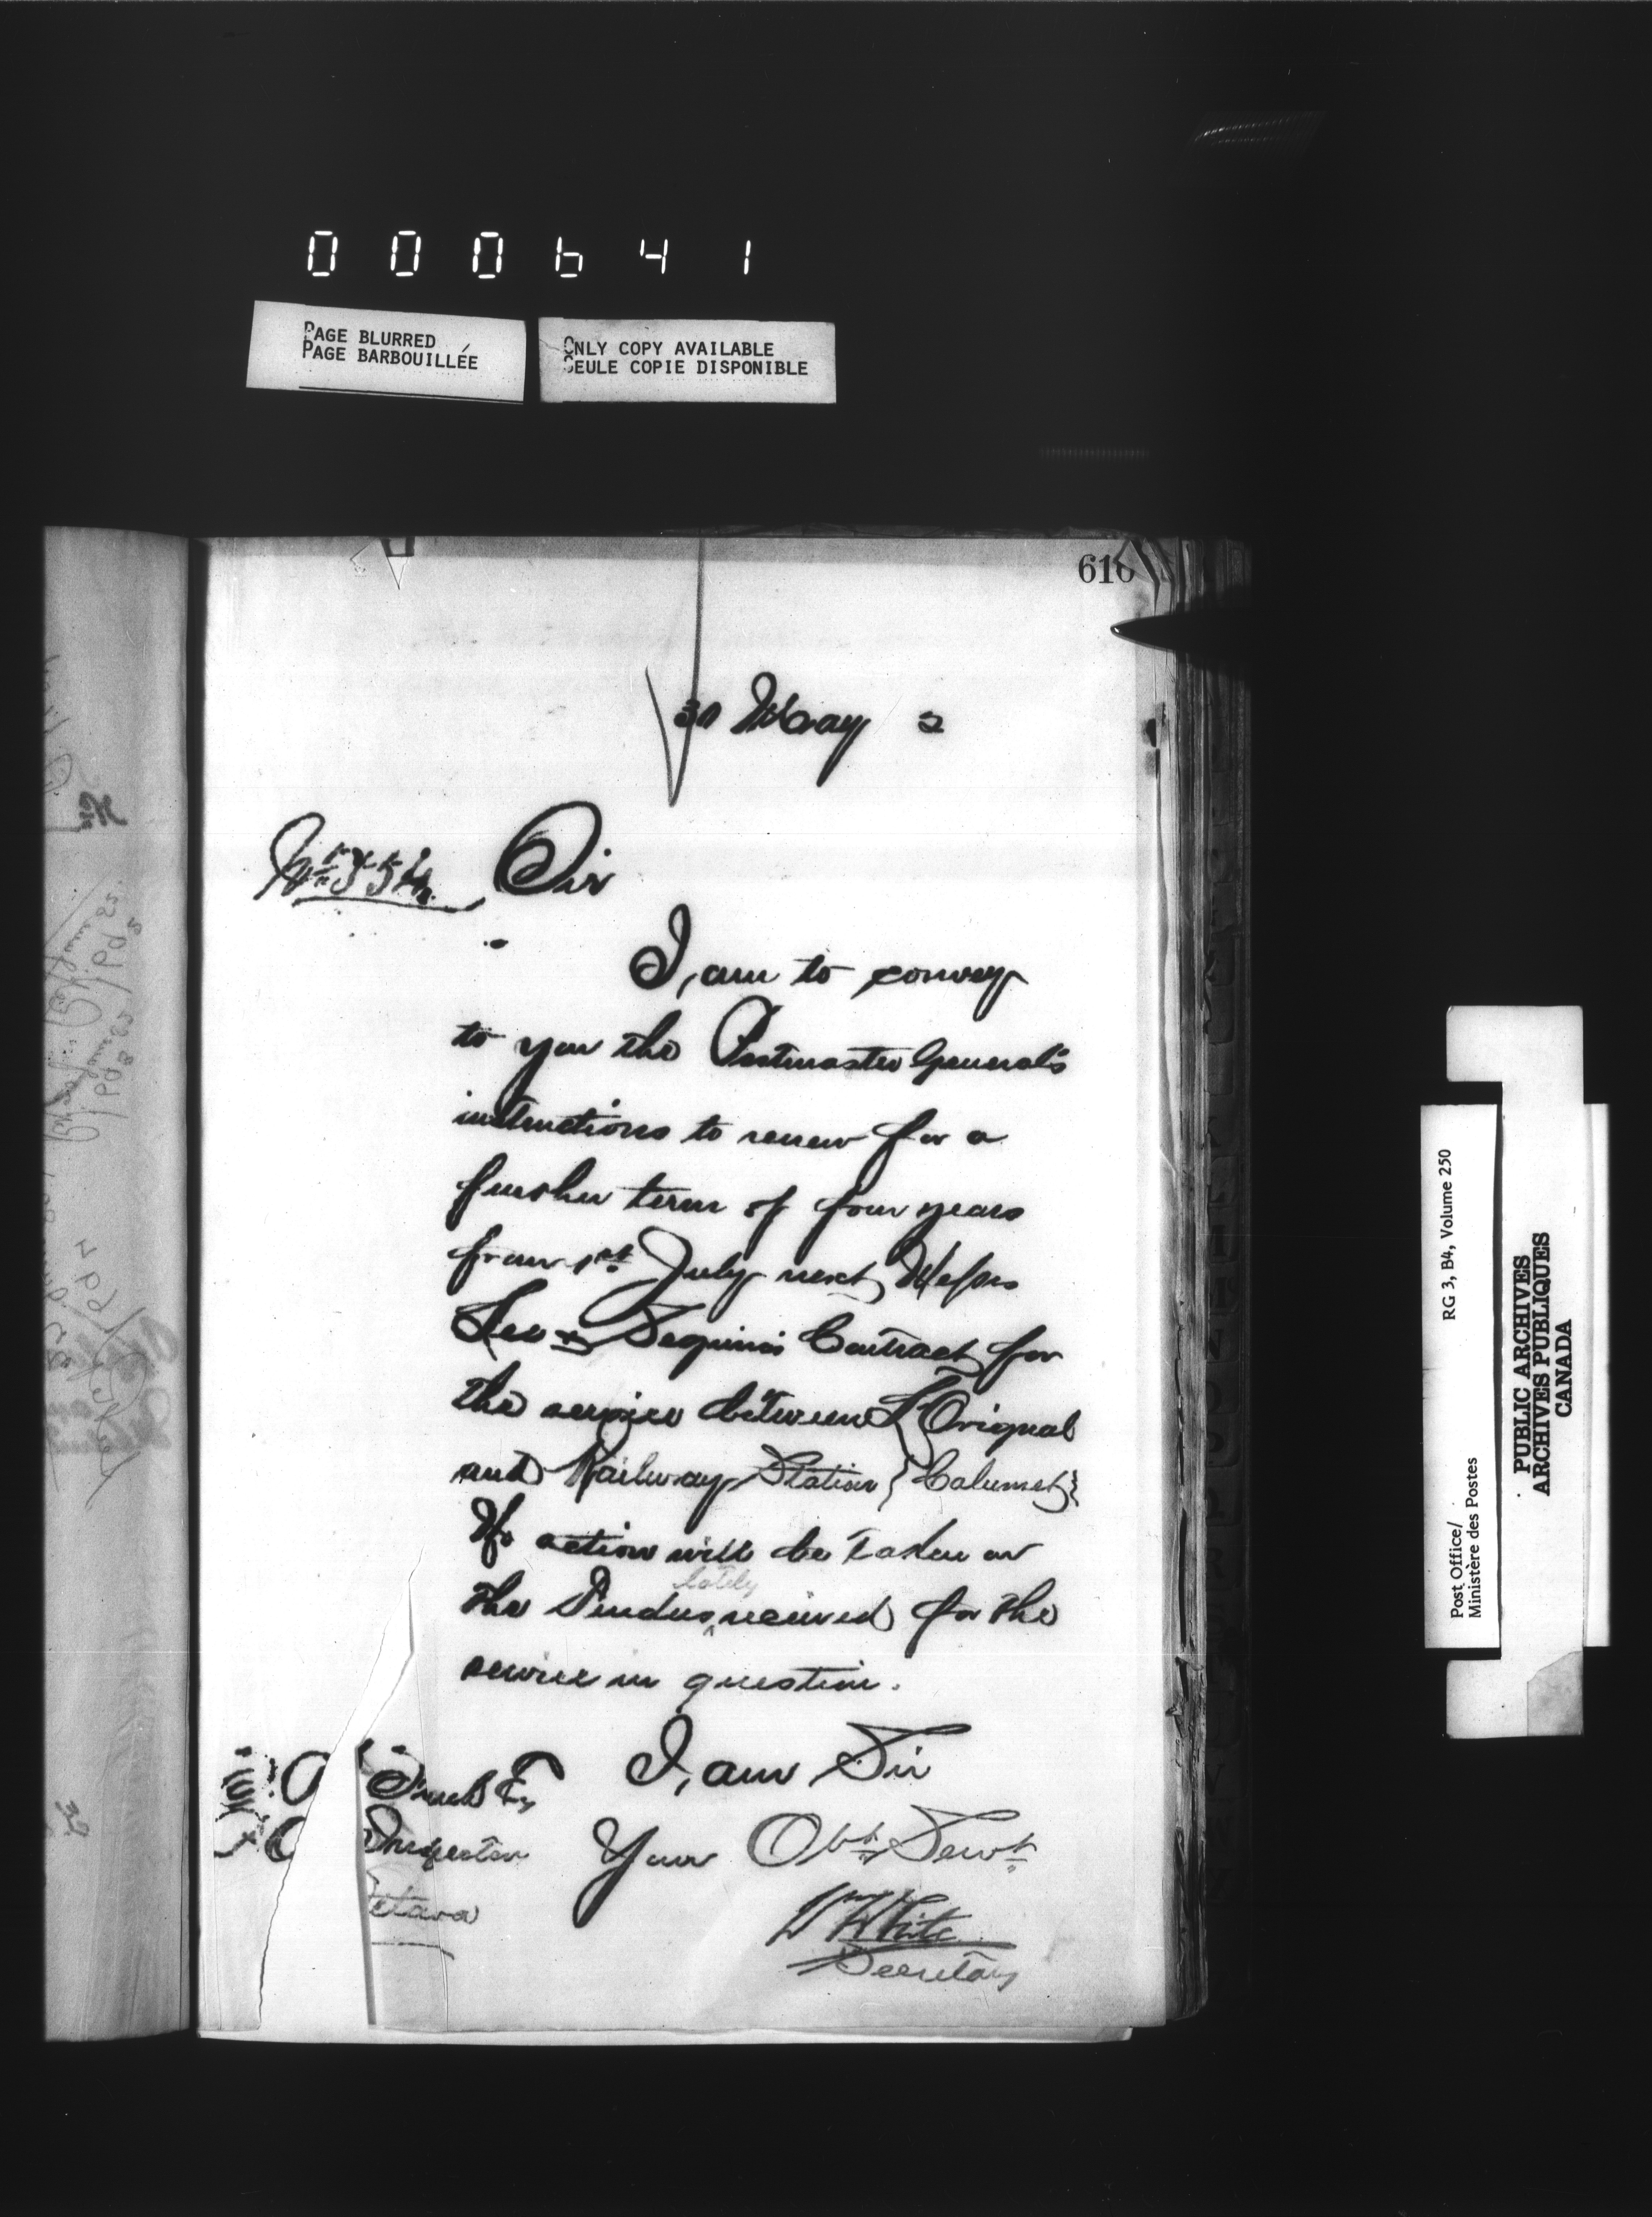 000641
PAGE BLURRED
PAGE BARBOUILLÉE
ONLY COPY AVAILABLE
SEULE COPIE DISPONIBLE
616
30 May 2
Sir
I am to convey
to you the Postmaster General's
instructions to renew for a
further term of four years
from 1st July next Messrs
& Seguin's Contract for
the service between L'Orignal
and Railway Station (Calumet)
No action will be taken on
the Tenders lately received for the
service in question.
I am Sir
French Esq
Inspector
Your Obt. Servt.
ttawa
Wm White
Secretary
RG 3, B4, Volume 250
Post Office/
Ministère des Postes
PUBLIC ARCHIVES
ARCHIVES PUBLIQUES
CANADA